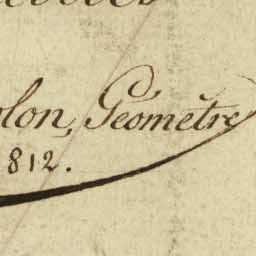 olon, Géomètre
812.